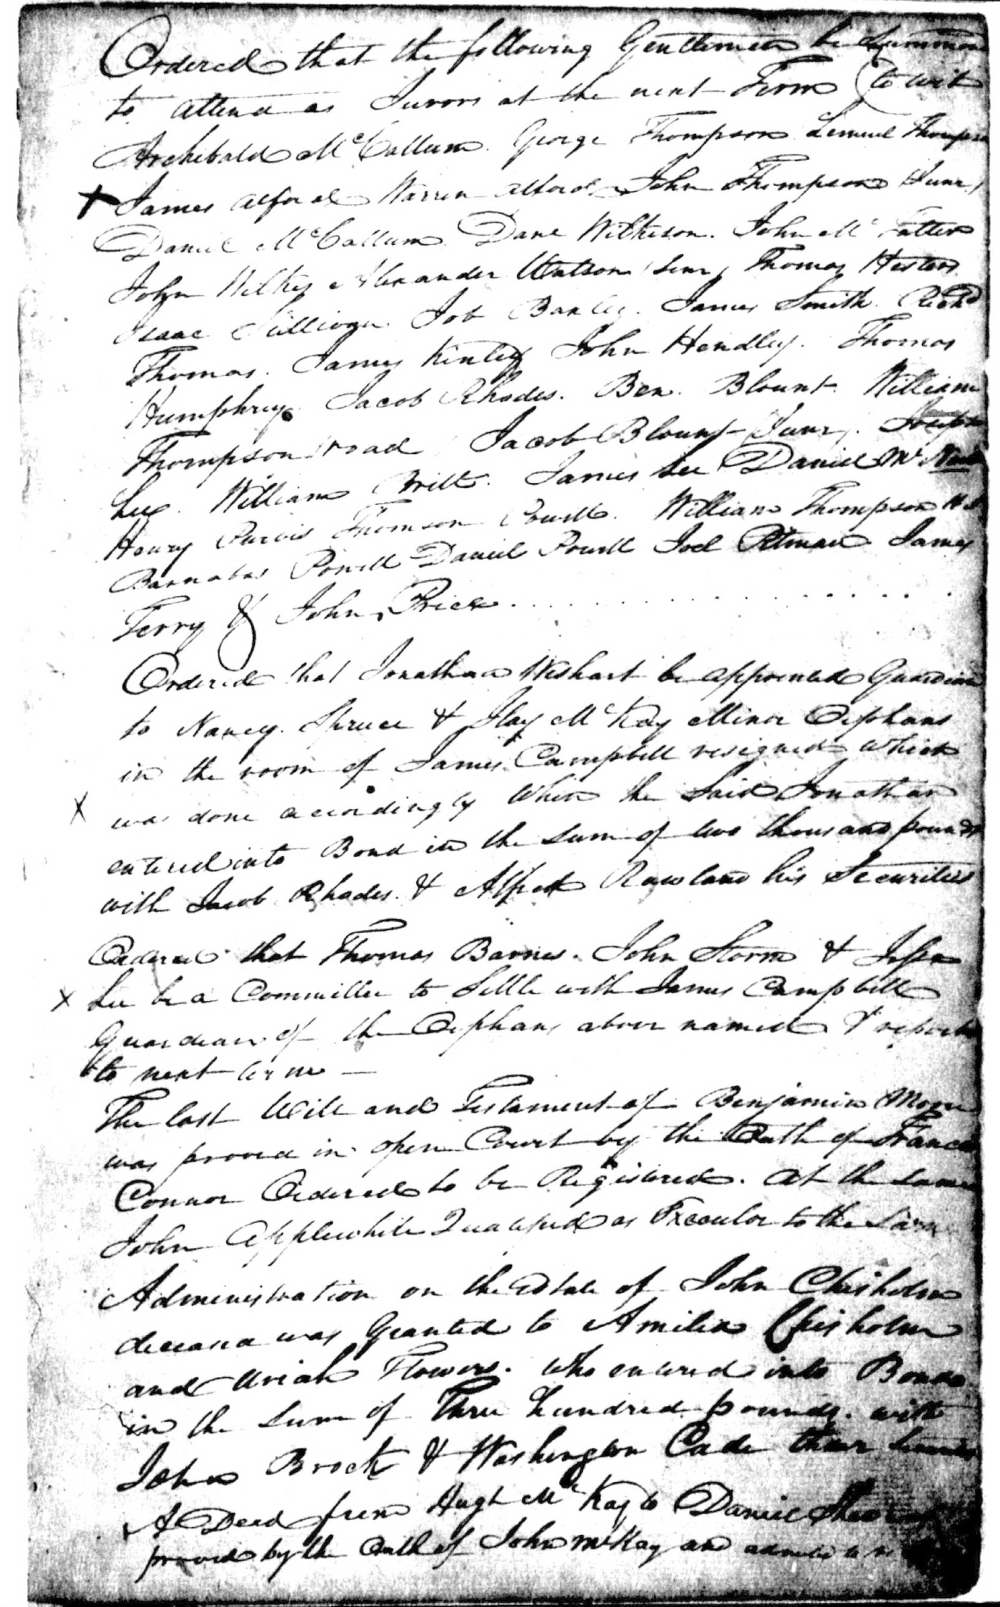 Ordered that the following Gentlemen be Summon
to attend as Jurors at the next Term (to wit
Archibald McCallum. George Thompson Lemuel Thompson
James Alford Warren Alford John Thompson Junr,
Daniel McCallum. Dane Wilkison. John Mc Fatter
John Wilkes Alexander Watson Senr, Thomas Hesters
Isaac Sulliogn. Job Baxley. James Smith. Richd
Thomas. James Kinley John Hendley. Thomas
Humphrey. Jacob Rhodes. Ben. Blount. William
Thompson road Jacob Blount Junr,. Joseph
Lee. William Britt. James Lee Daniel Mc
Henry Purvis Thomson Powell. William Thompson
Barnabas Powell Daniel Powell Joel Pitman James
Terry & John Price
Ordered that Jonathan Wishart be appointed Guardian
to Nancy. Spruce & Ilay McKay Minor Orphans
in the room of James Campbell resigned which
was done accordingly When the Said Jonathan
entered into Bond in the Sum of two thousand pounds
with Jacob Rhodes. & Alfred Rowland his Securities
Ordered that Thomas Barnes. John Storm & Jesse
Lee be a Committee to Settle with James Campbell
Guardian of the Orphans above named & report
to next term
The last Will and Testament of Benjamin Moore
was proved in open Court by the Oath of Francis
Connor Ordered to be Registered. At the same
John Applewhite Qualified as Executor to the Same
Administration on the Estate of John Chisholm
deceasd was Granted to Amilia Chisholm
and Uriah Flowers. Who entered into Bond
in the Sum of Three hundred pounds. with
John Brock & Washington Cade their
A Deed from Hugh McKay to Daniel
proved by the Oath of John McKay and